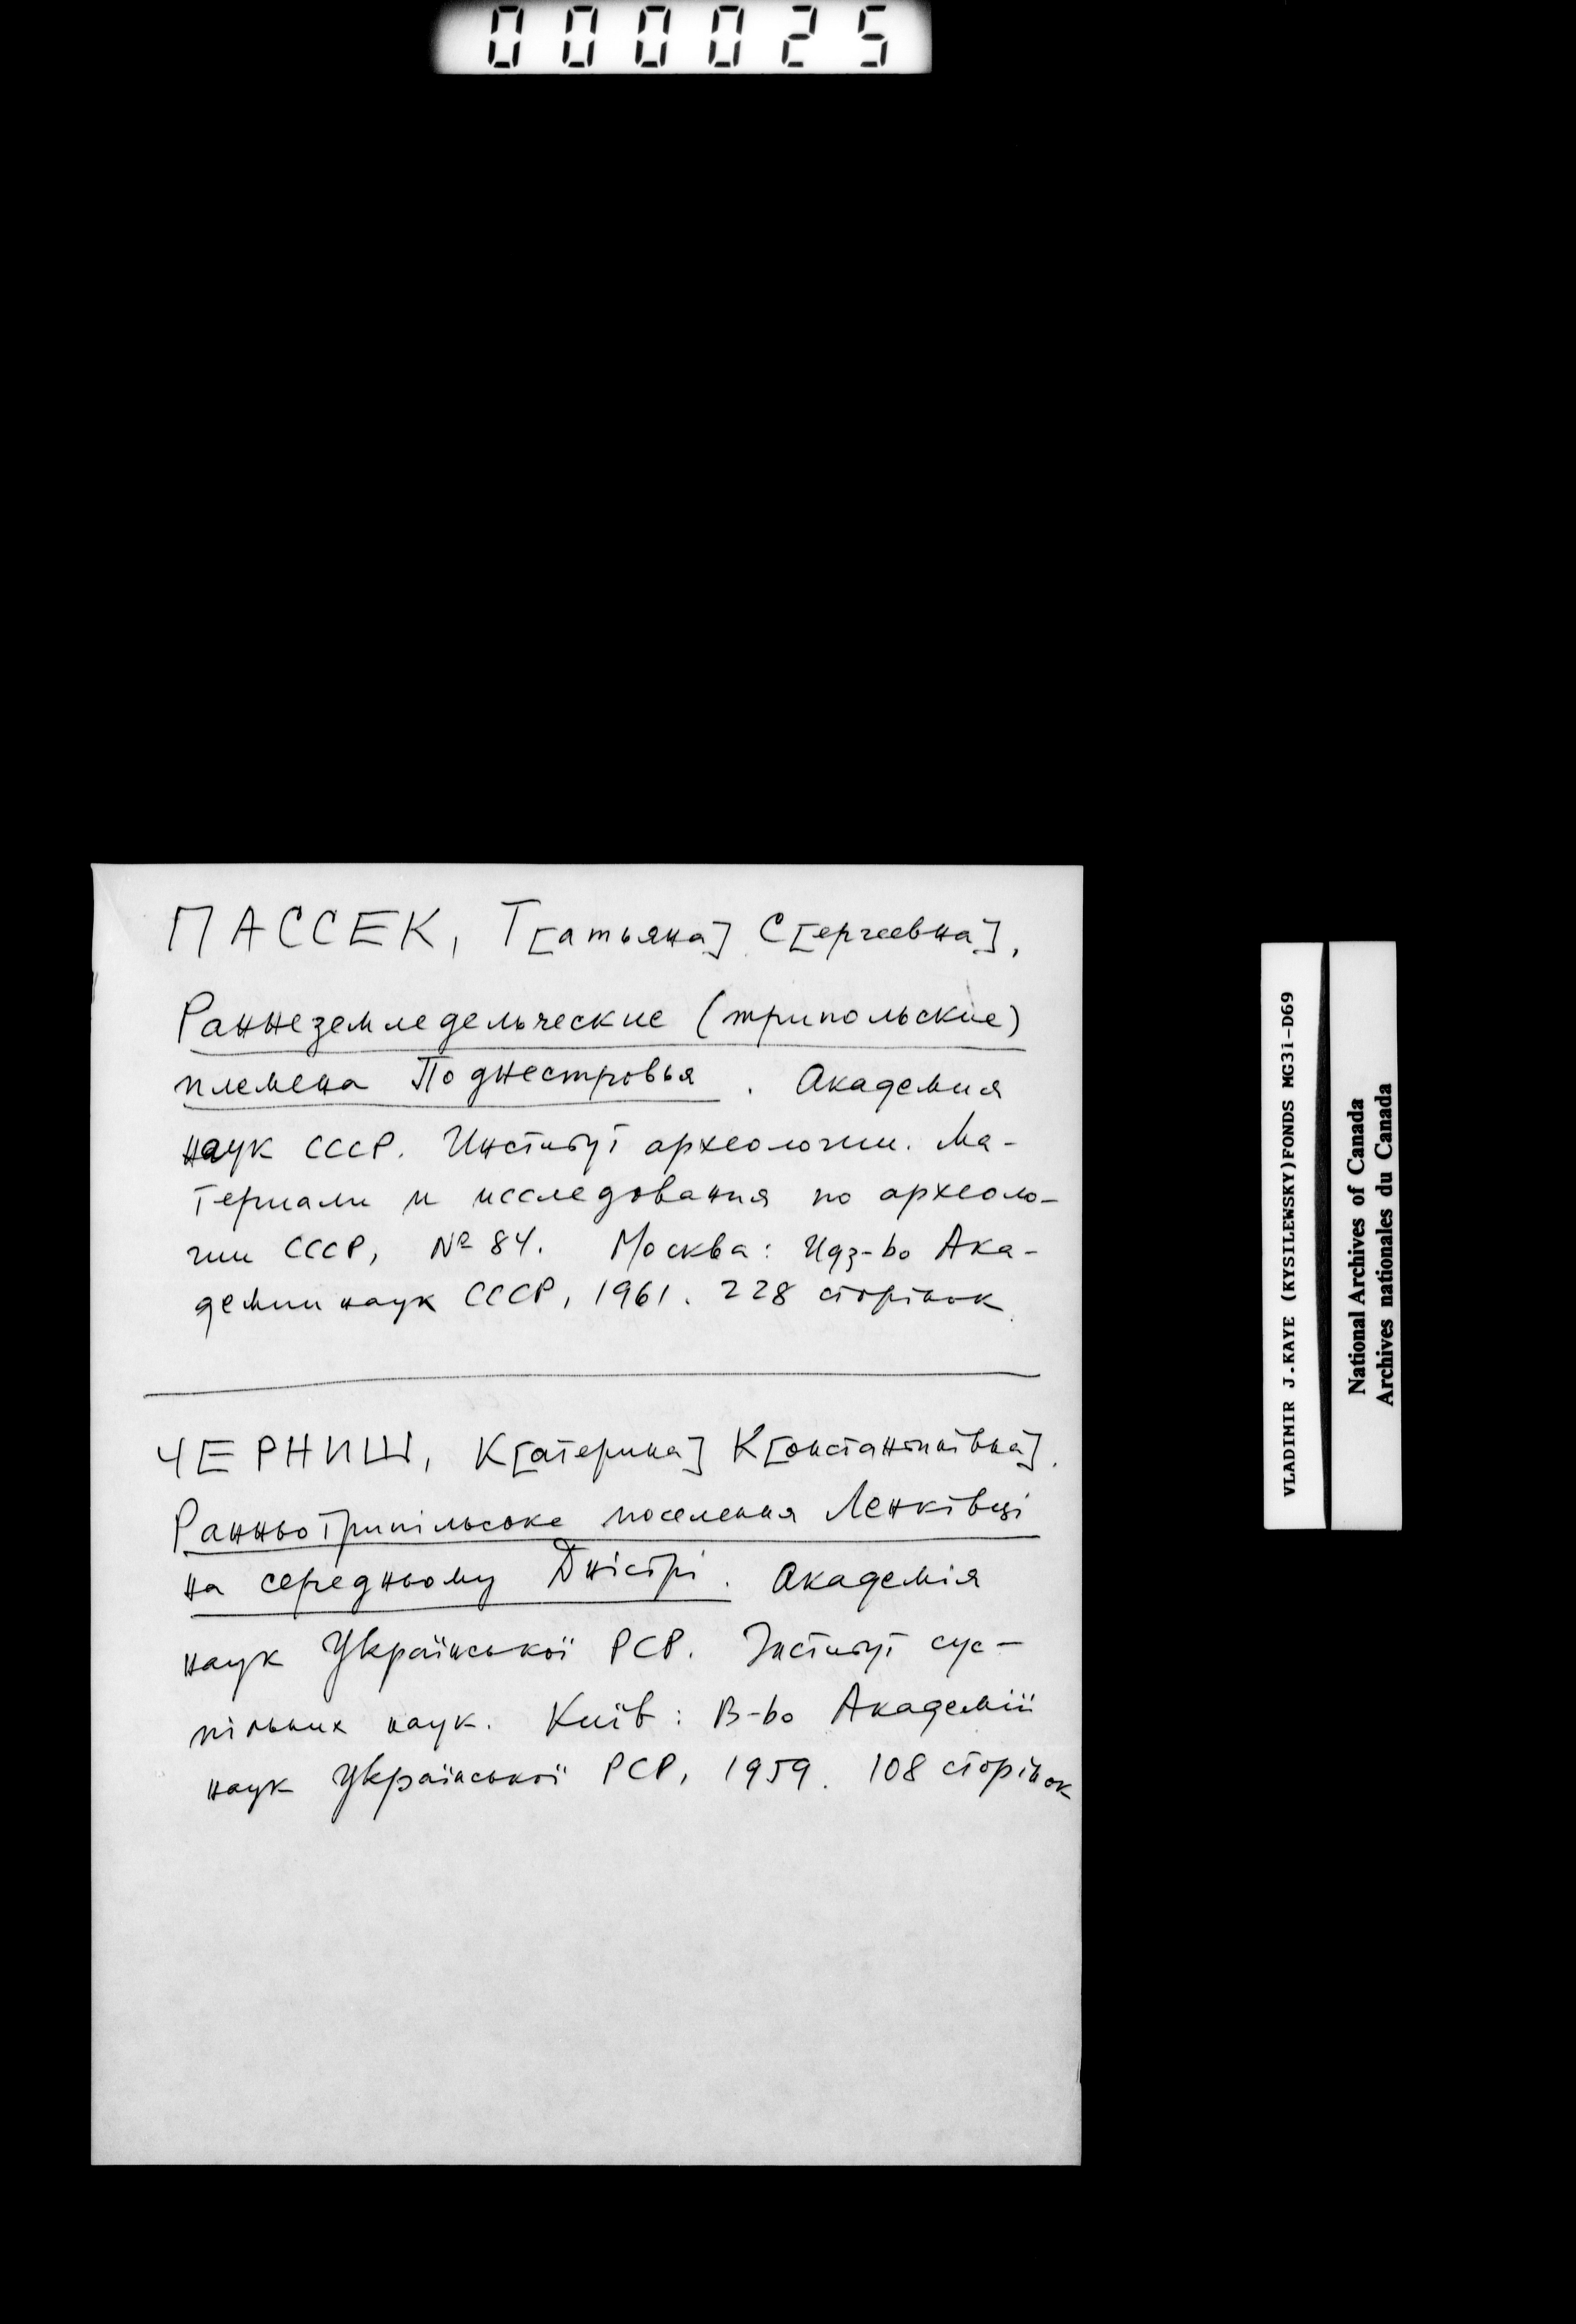 000025
ПАССЕК, Т[атьяна] С[ергеевна],
Раннеземледельческие (трипольские)
племена Поднестровья. Академия
наук СССР. Институт археологии. Ма-
териали и исследования по археоло-
гии СССР, № 84. Москва: Идз-во Ака-
демии наук СССР, 1961. 228 сторінок.
ЧЕРНИШ, К[атерина] К[онстантинівна].
Ранньотрипільське поселення Ленківці
на середньому Дністрі. Академія
наук Української РСР. Інститут сус-
пільних наук. Київ: В-во Академії
наук Української РСР, 1959. 108 сторінок
VLADIMIR J.KAYE (KYSILEWSKY)FONDS MG31-D69
National Archives of Canada
Archives nationales du Canada